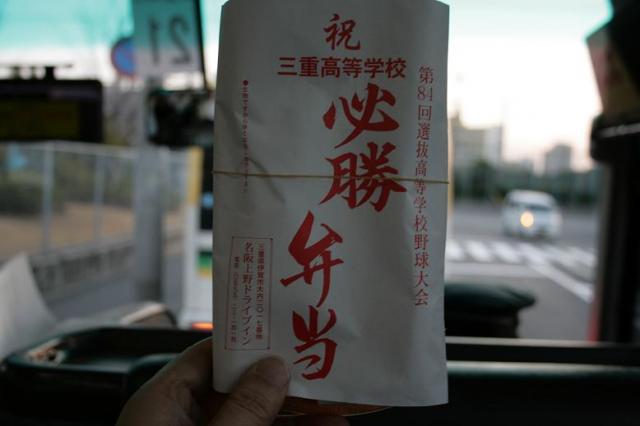 祝
三重高等学校
必勝
弁当
第84回選抜高等学校野球大会
三重県伊賀市大内二〇一七番地
名阪上野ドライブイン
21